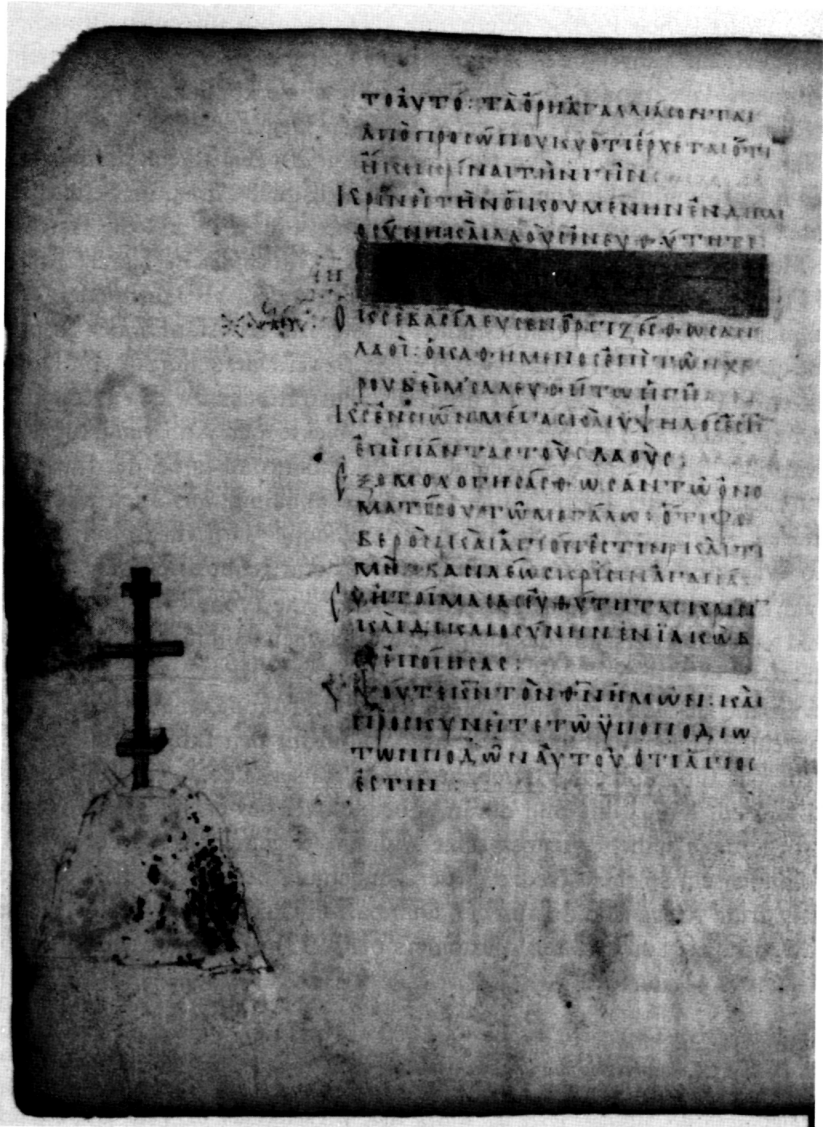 ΤΟΑΥΤΟ: ΤΑΌΡΗΑΓΑΛΛΙΑСΟΝΤΑΙ
ΑΠΟΠΡΟСΩΠΟΥΚΥΟΤΙΕΡΧΕΤΑΙΟΤΙ
ΗΚΕΙΚΡΙΝΑΙΤΗΝΓΗΝ
ΚΡΙΝΕΙΤΗΝΟΙΚΟΥΜΕΝΗΝΕΝΔΙΚΑΙ
ΟСΥΝΗΚΑΙΛΑΟΥСΕΝΕΥΘΥΤΗΤΙ
ΟΚСΕΒΑСΙΛΕΥСΕΝΟΡΓΙΖΕСΘΩСΑΝ
ΛΑΟΙ: ΟΚΑΘΗΜΕΝΟСΕΠΙΤΩΝΧΕ
ΡΟΥΒΕΙΜСΑΛΕΥΘΗΤΩΗΓΗ
ΚСΕΝСΙΩΝΜΕΓΑСΚΑΙΥΨΗΛΟСΕСΤΙ
ΕΠΙΠΑΝΤΑСΤΟΥСΛΑΟΥС:
ΕΞΟΜΟΛΟΓΗСΑСΘΩСΑΝΤΩΟΝΟ
ΜΑΤΙСΟΥΤΩΜΕΓΑΛΩ: ΟΤΙΦΟ
ΒΕΡΟΝΚΑΙΑΓΙΟΝΕСΤΙΝ: ΚΑΙΤΙ
ΜΗΒΑСΙΛΕΩСΚΡΙСΙΝΑΓΑΠΑ:
СΥΗΤΟΙΜΑСΑСΕΥΘΥΤΗΤΑСΚΡΙСΙΝ
ΚΑΙΔΙΚΑΙΟСΥΝΗΝΕΝΪΑΚΩΒ
СΥΕΠΟΙΗСΑС:
ΥΨΟΥΤΕΚΝΤΟΝΘΝΗΜΩΝ: ΚΑΙ
ΠΡΟСΚΥΝΕΙΤΕΤΩΫΠΟΠΟΔΙΩ
ΤΩΝΠΟΔΩΝΑΥΤΟΥΟΤΙΑΓΙΟС
ΕСΤΙΝ: